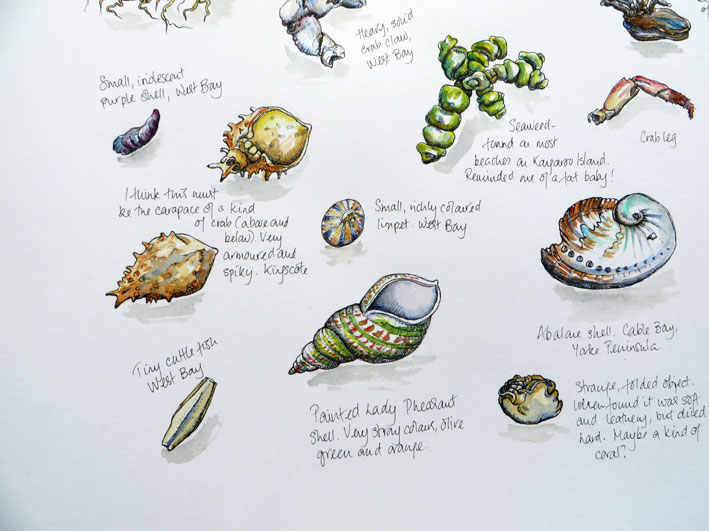 Heavy, solid
crab claw,
West Bay
Small, iridescent
purple shell, West Bay
Seaweed -
found on most
beaches on Kangaroo Island.
Reminded me of a fat baby!
Crab leg
I think this must
be the carapace of a kind
of crab (above and
below). Very
armoured and
spiky. Kingscote
Small, richly coloured
limpet. West Bay
Abalone shell. Cable Bay,
Yorke Peninsula
Tiny cuttlefish
West Bay
Painted Lady Pheasant
shell. Very strong colours, olive
green and orange.
Strange, folded object.
When found it was soft
and leathery, but dried
hard. Maybe a kind of
coral?